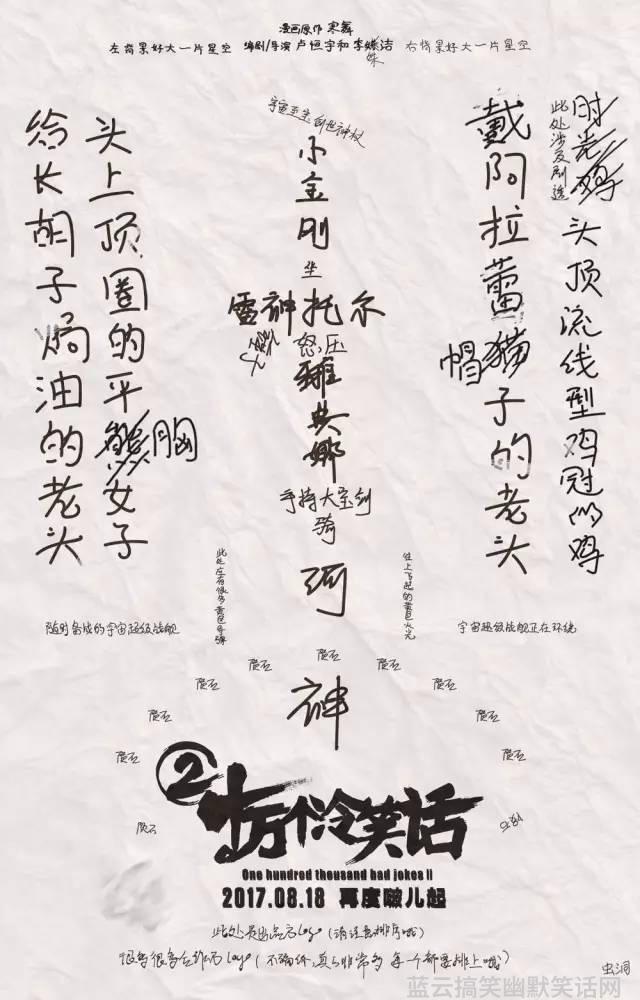 漫画原作 寒舞
左背景好大一片星空 编剧/导演 卢恒宇和李姝洁 右背景好大一片星空
宇宙至宝创世神权
小金刚
坐
雷神托尔
怒压
雅典娜
手持大宝剑
骑
河
神
头上顶圈的平胸女子
给长胡子焗油的老头
此处涉及剧透
时光鸡
头顶流线型鸡冠的鸡
戴阿拉蕾帽子的老头
猫
此处应有很多黄色导弹
往上飞起的黄色火光
随时备战的宇宙超级战舰
宇宙超级战舰正在环绕
陨石
陨石
陨石
陨石
陨石
陨石
陨石
陨石
陨石
陨石
2
十万个冷笑话
One hundred thousand bad jokes II
2017.08.18 再度啵儿起
此处是出品方logo(请注意排序哦)
很多很多合作方logo(不骗你,真的非常多 每一个都要排上哦)
虫洞
蓝云搞笑幽默笑话网